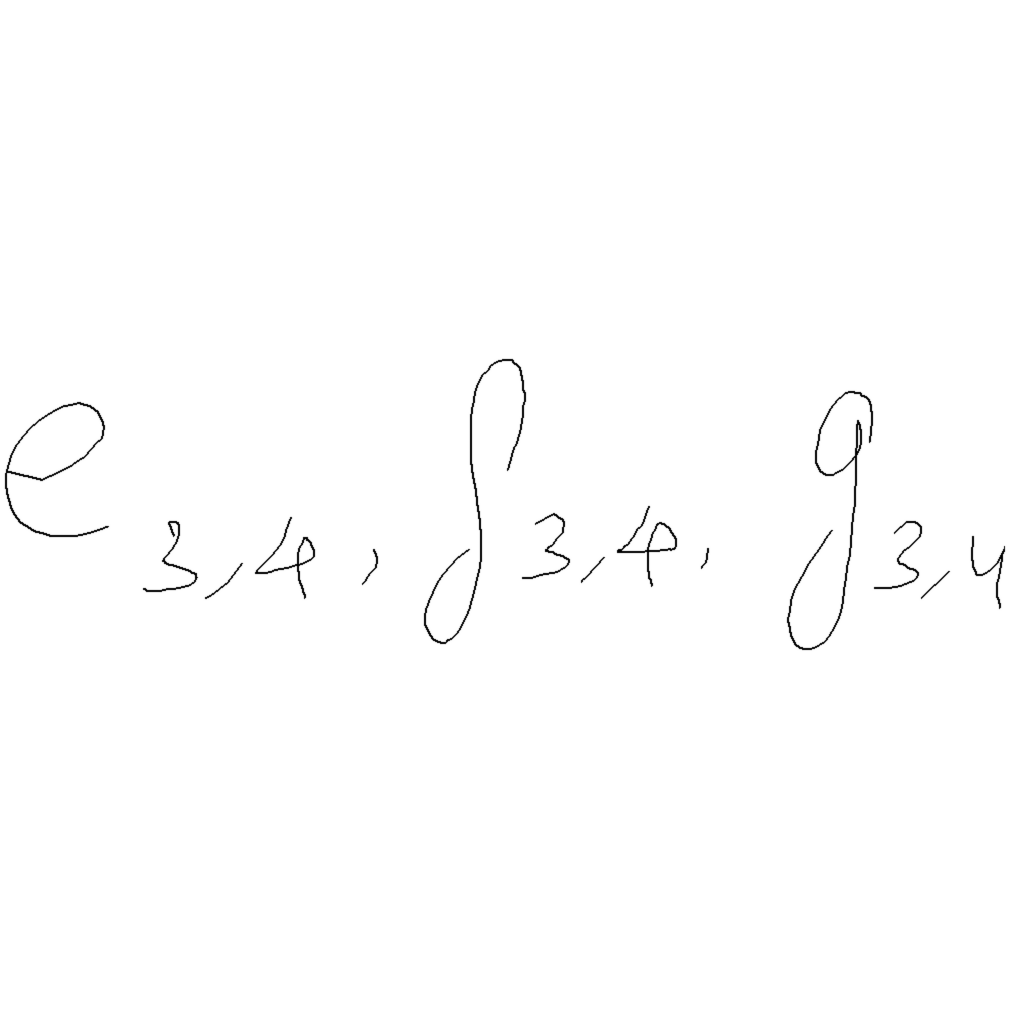 e_{3,4}, f_{3,4}, g_{3,4}